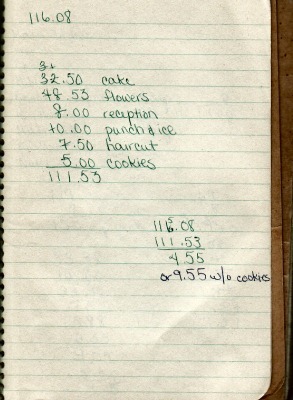 116.08
31
32.50 cake
48.53 flowers
8.00 reception
10.00 punch & ice
7.50 haircut
5.00 cookies
111.53
5
116.08
111.53
4.55
or 9.55 w/o cookies